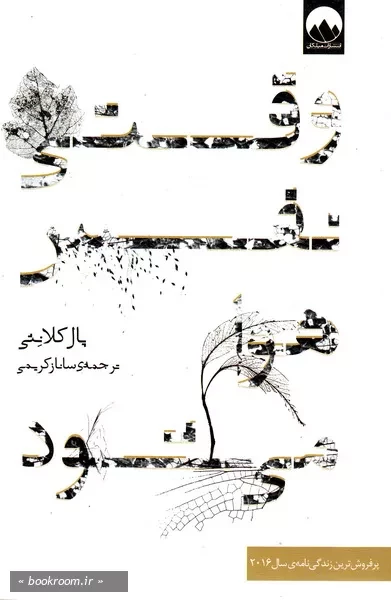 انتشارات میلکان
وقتی
نفس
هوا
می‌شود
پال کلانیثی
ترجمه‌ی ساناز کریمی
پرفروش‌ترین زندگی‌نامه‌ی سال ۲۰۱۶
« bookroom.ir »